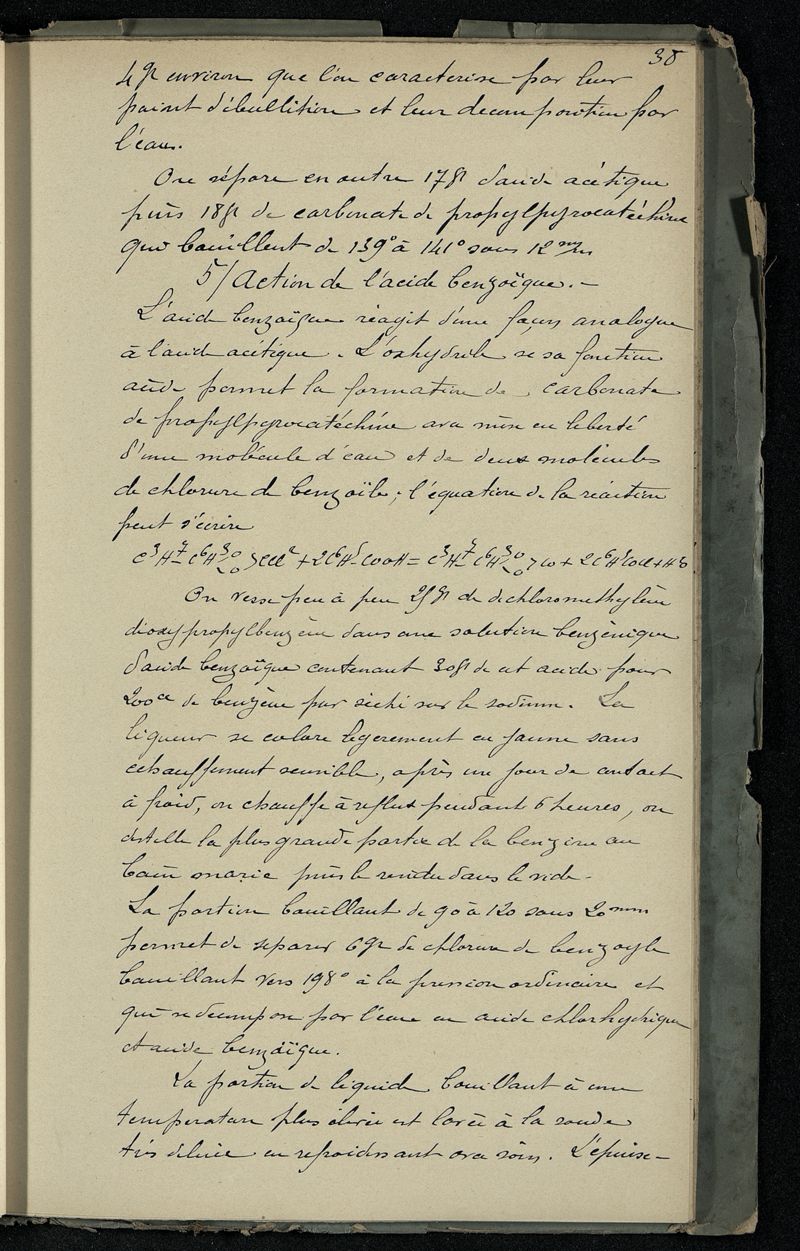 38
4gr environ que l'on caracterise par leur
point d'ébullition et leur decomposition par
l'eau.
On sépare en outre 17gr d'acide acétique
puis 18gr de carbonate de propylpyrocatéchine
qui bouillent de 139° à 141° sous 12 m/m
5/ Action de l'acide benzoïque. -
L'acide benzoïque réagit d'une façon analogue
à l'acide acétique. L'oxhydrile de sa fonction
acide permet la formation de carbonate
de propylpyrocatéchine avec mise en liberté
d'une molécule d'eau et de deux molécules
de chlorure de benzoïle ; l'équation de la réaction
peut s'écrire
C³H⁷-C⁶H³<O O>CCl² + 2C⁶H⁵-COOH = C³H⁷-C⁶H³<O O>CO + 2C⁶H⁵COCl + H²O
On verse peu à peu 25gr de dichloromethylène
dioxypropylbenzène dans une solution benzènique
d'acide benzoïque contenant 30gr de cet acide pour
200cc de benzène pur séché sur le sodium. La
liqueur se colore légerement en jaune sans
echauffement sensible, après un jour de contact
à froid, on chauffe à reflux pendant 6 heures, on
distille la plus grande partie de la benzine au
bain marie puis le residu dans le vide -
La portion bouillant de 90 à 120 sous 20mm
permet de separer 6gr de chlorure de benzoyle
bouillant vers 198° à la pression ordinaire et
qui se decompose par l'eau en acide chlorhydrique
et acide benzoïque.
La portion de liquide bouillant à une
temperature plus élevée est lavée à la soude
très diluée en refroidissant avec soin. L'épuise-